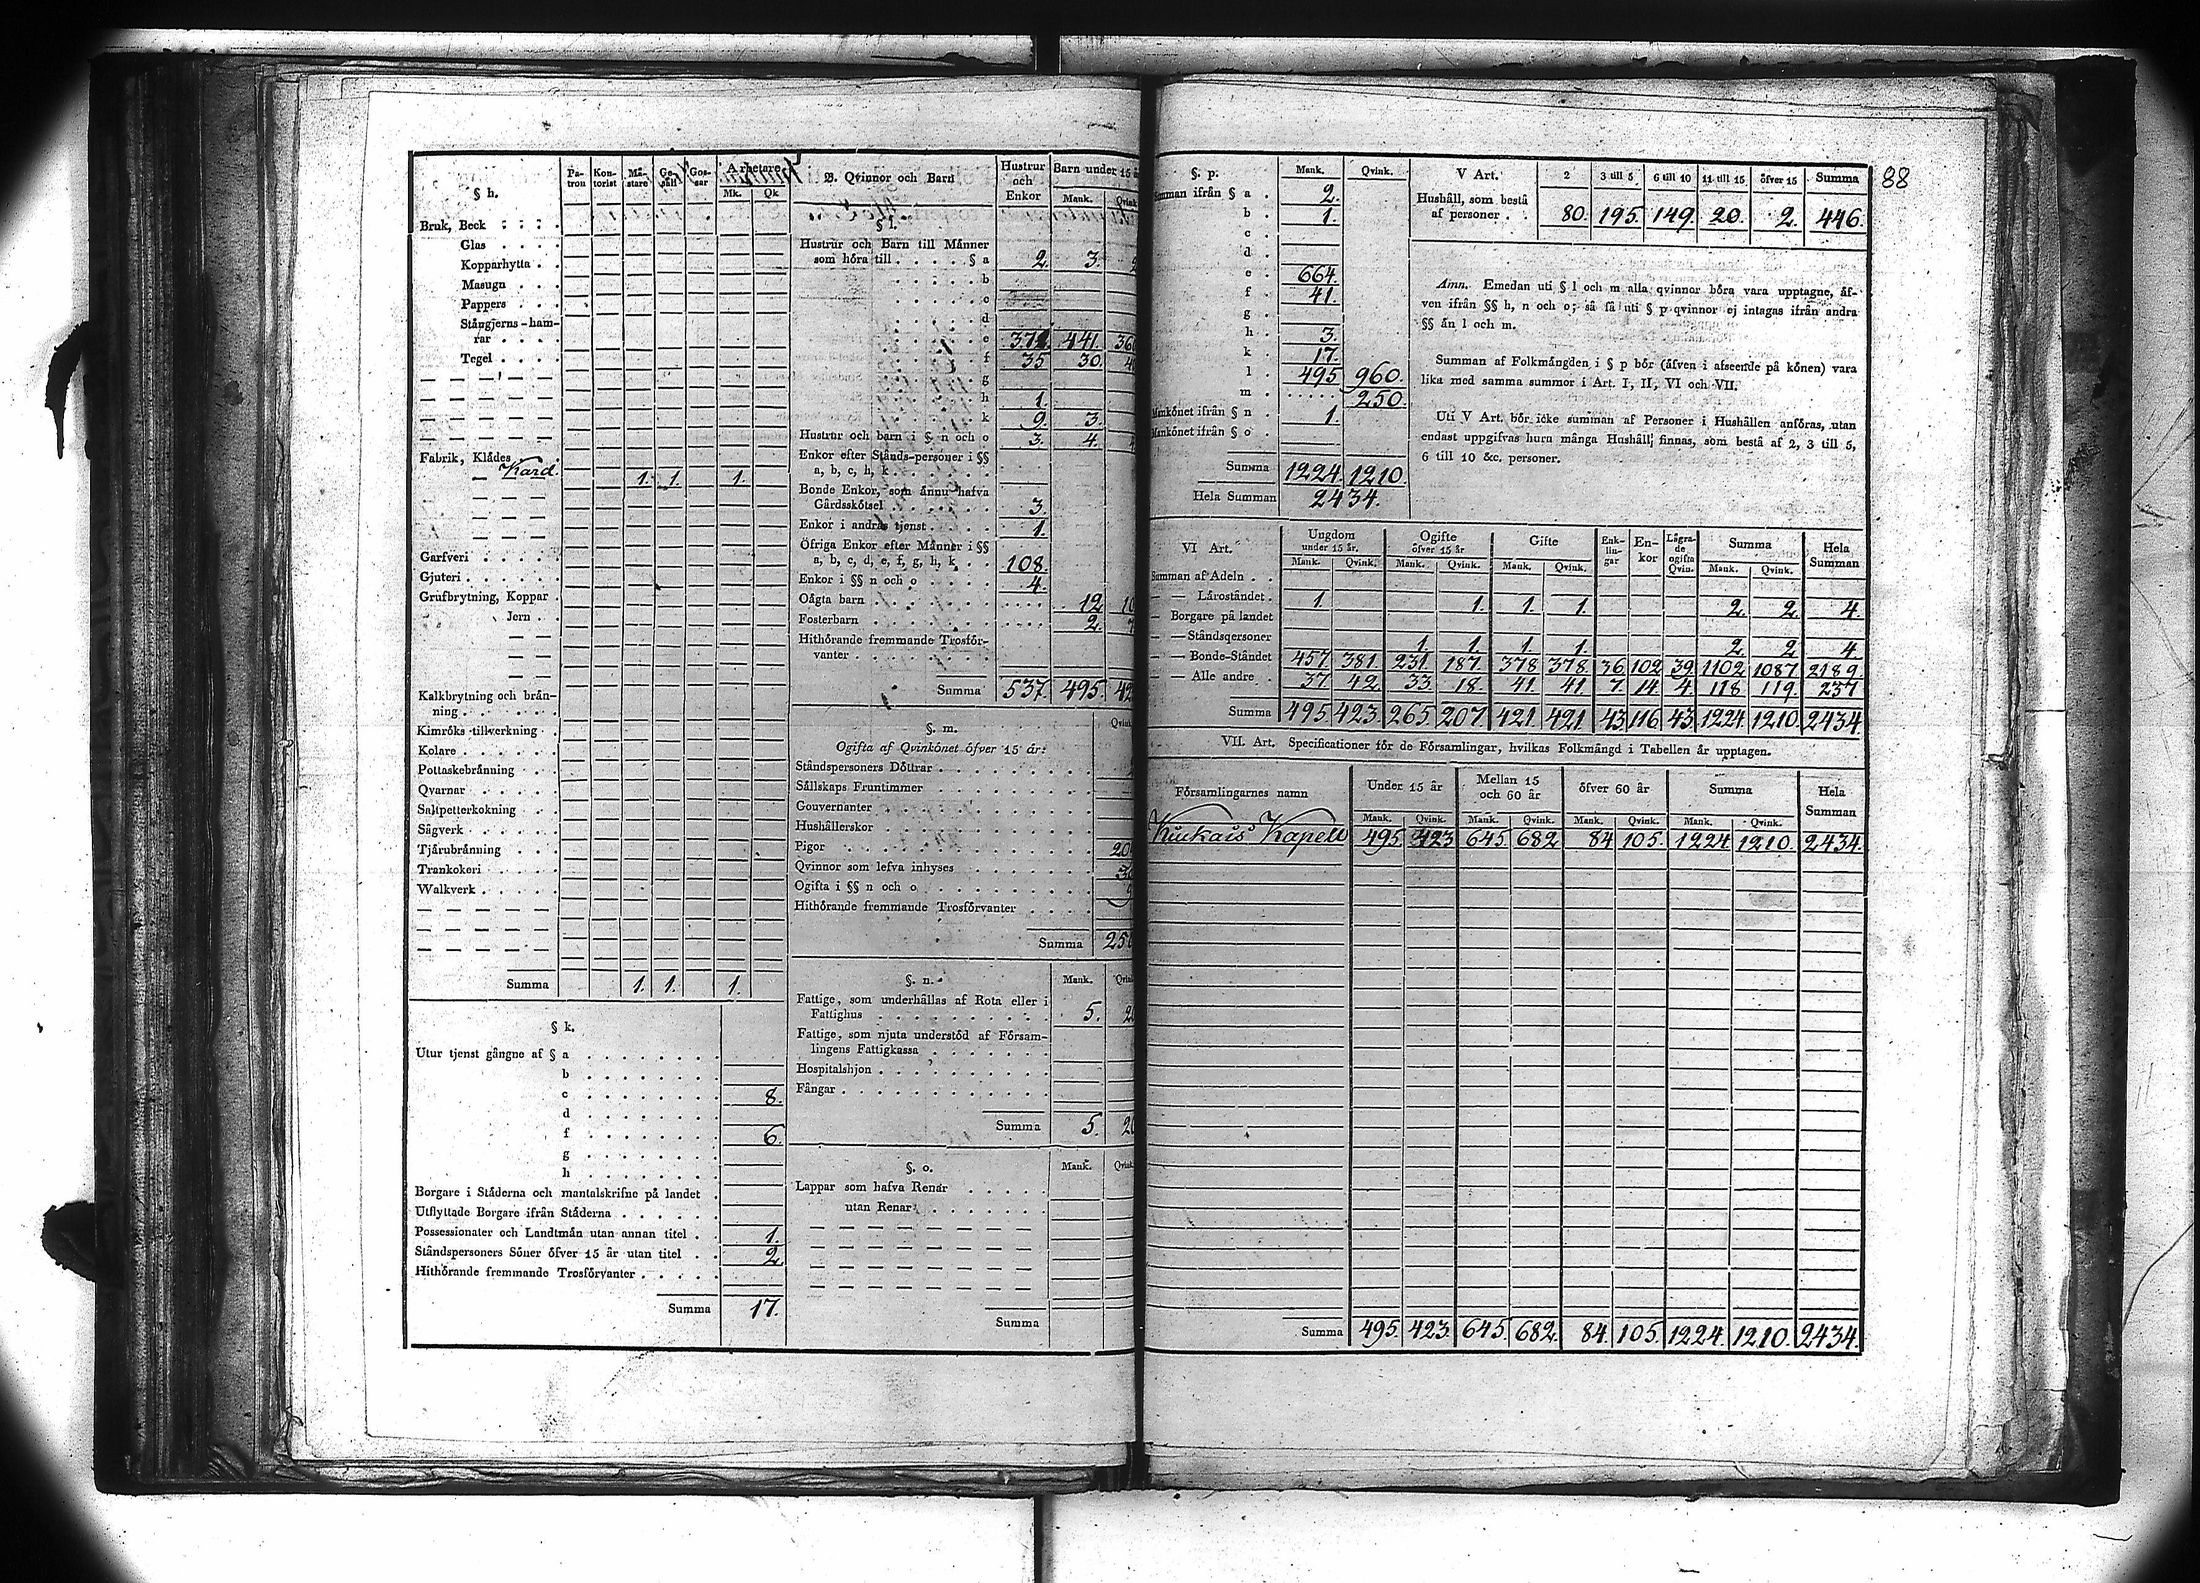 § h.
Pa-tron Kon-torist Mä-stare Ge-säll Gos-sar Arbetare Mk. Qk
Bruk, Beck
Glas
Kopparhytta
Masugn
Pappers
Stångjerns-ham-
rar
Tegel
Fabrik, Klädes
Kard 1. 1. 1.
Garfveri
Gjuteri
Grufbrytning, Koppar
Jern
Kalkbrytning och brän-
ning
Kimröks-tillverkning
Kolare
Pottaskebränning
Qvarnar
Saltpetterkokning
Sågverk
Tjärubränning
Trankokeri
Walkverk
Summa 1. 1. 1.
§ k.
Utur tjenst gångne af § a
b
c 8.
d
f 6.
g
h
Borgare i Städerna och mantalskrifne på landet
Utflyttade Borgare ifrån Städerna
Possessionater och Landtmän utan annan titel 1.
Ståndspersoners Söner öfver 15 år utan titel 2.
Hithörande fremmande Trosförvanter
Summa 17.
B. Qvinnor och Barn
Hustrur och Enkor Barn under 15 Mank. Qvink
§ l.
Hustrur och Barn till Männer
som höra till § a 2. 3.
b
c
d
e 371. 441.
f 35 30.
g
h 1.
k 9. 3.
Hustrur och barn i § n och o 3. 4.
Enkor efter Stånds-personer i §§
a, b, c, h, k
Bonde Enkor, som ännu hafva
Gårdsskötsel 3.
Enkor i andras tjenst 1.
Öfriga Enkor efter Männer i §§
a, b, c, d, e, f, g, h, k 108.
Enkor i §§ n och o 4.
Oägta barn 12
Fosterbarn 2.
Hithörande fremmande Trosför-
vanter
Summa 537. 495.
§. m.
Qvink
Ogifta af Qvinkönet öfver 15 år:
Ståndspersoners Döttrar
Sällskaps Fruntimmer
Gouvernanter
Hushållerskor
Pigor
Qvinnor som lefva inhyses
Ogifta i §§ n och o
Hithörande fremmande Trosförvanter
Summa 250
§. n.
Mank.
Fattige, som underhållas af Rota eller i
Fattighus 5.
Fattige, som njuta understöd af Försam-
lingens Fattigkassa
Hospitalshjon
Fångar
Summa 5.
§. o.
Mank. Qvink.
Lappar som hafva Renar
utan Renar
Summa
88
§. p. Mank. Qvink.
Summan ifrån § a 2.
b 1.
c
d
e 664.
f 41.
g
h 3.
k 17.
l 495 960.
m 250.
Mankönet ifrån § n 1.
Mankönet ifrån § o
Summa 1224. 1210.
Hela Summan 2434.
V Art. 2 3 till 5 6 till 10 11 till 15 öfver 15 Summa
Hushåll, som bestå
af personer 80. 195. 149. 20. 2. 446.
Anm. Emedan uti § l och m alla qvinnor böra vara upptagne, äf-
ven ifrån §§ h, n och o; så få uti § p qvinnor ej intagas ifrån andra
§§ än l och m.
Summan af Folkmängden i § p bör (äfven i afseende på könen) vara
lika med samma summor i Art. I, II, VI och VII.
Uti V Art. bör icke summan af Personer i Hushållen anföras, utan
endast uppgifvas huru många Hushåll finnas, som bestå af 2, 3 till 5,
6 till 10 &c. personer.
VI Art. Ungdom under 15 år. Ogifte öfver 15 år Gifte Enk-lin-gar En-kor Lägra-de ogifta Qvin. Summa Hela Summan
Mank. Qvink. Mank. Qvink. Mank. Qvink. Mank. Qvink.
Summan af Adeln
— — Läroståndet 1. 1. 1. 1. 2. 2. 4.
— Borgare på landet
— — Ståndspersoner 1. 1. 1. 1. 2. 2 4.
— — Bonde-Ståndet 457. 381. 231. 187. 378 378. 36 102 39. 1102 1087 2189.
— — Alle andre 37. 42. 33. 18. 41. 41. 7. 14. 4. 118. 119. 237
Summa 495. 423. 265. 207. 421. 421. 43. 116. 43. 1224 1210. 2434.
VII. Art. Specificationer för de Församlingar, hvilkas Folkmängd i Tabellen är upptagen.
Församlingarnes namn Under 15 år Mellan 15 och 60 år öfver 60 år Summa Hela Summan
Mank. Qvink. Mank. Qvink. Mank. Qvink. Mank. Qvink.
Kiukais Kapell 495. 423 645. 682 84 105. 1224 1210. 2434.
Summa 495. 423. 645. 682. 84. 105. 1224. 1210. 2434.